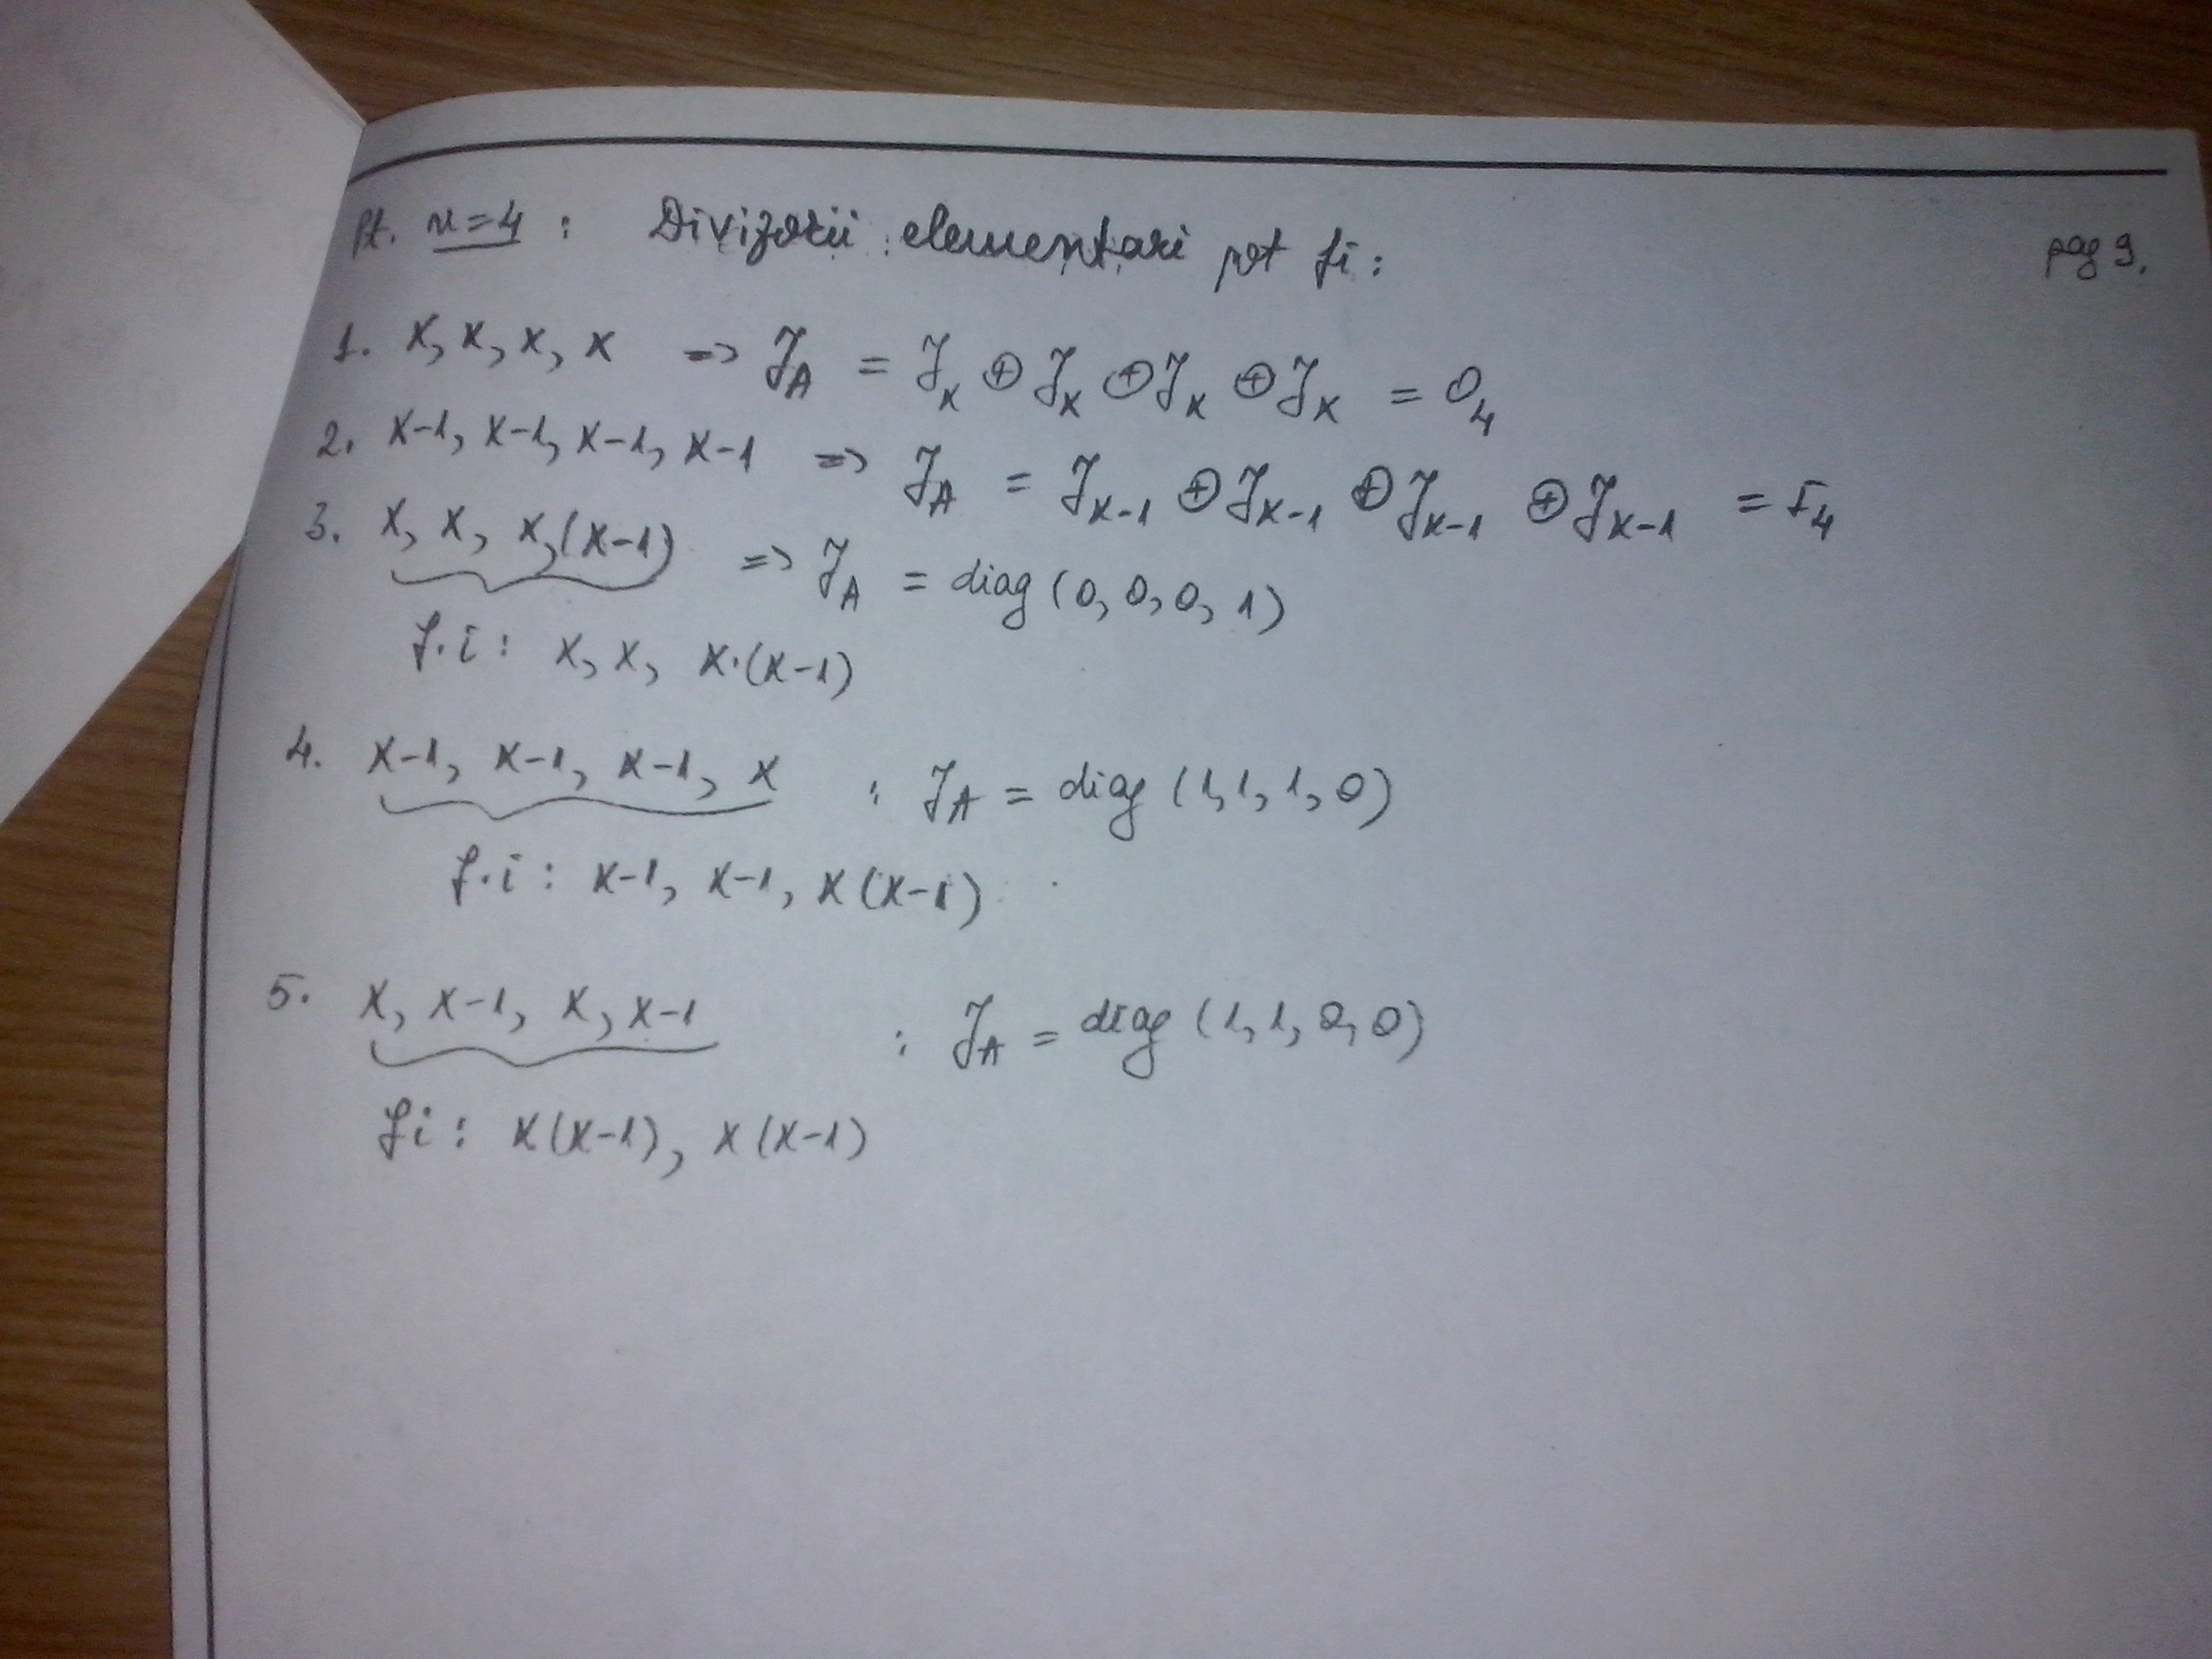 Pt. n=4 : Divizorii elementari pot fi : pag 9.
1. x, x, x, x => J_A = J_x ⊕ J_x ⊕ J_x ⊕ J_x = O_4
2. x-1, x-1, x-1, x-1 => J_A = J_{x-1} ⊕ J_{x-1} ⊕ J_{x-1} ⊕ J_{x-1} = I_4
3. x, x, x, (x-1) => J_A = diag (0, 0, 0, 1)
f.i : x, x, x·(x-1)
4. x-1, x-1, x-1, x : J_A = diag (1, 1, 1, 0)
f.i : x-1, x-1, x(x-1)
5. x, x-1, x, x-1 : J_A = diag (1, 1, 0, 0)
fi : x(x-1), x(x-1)